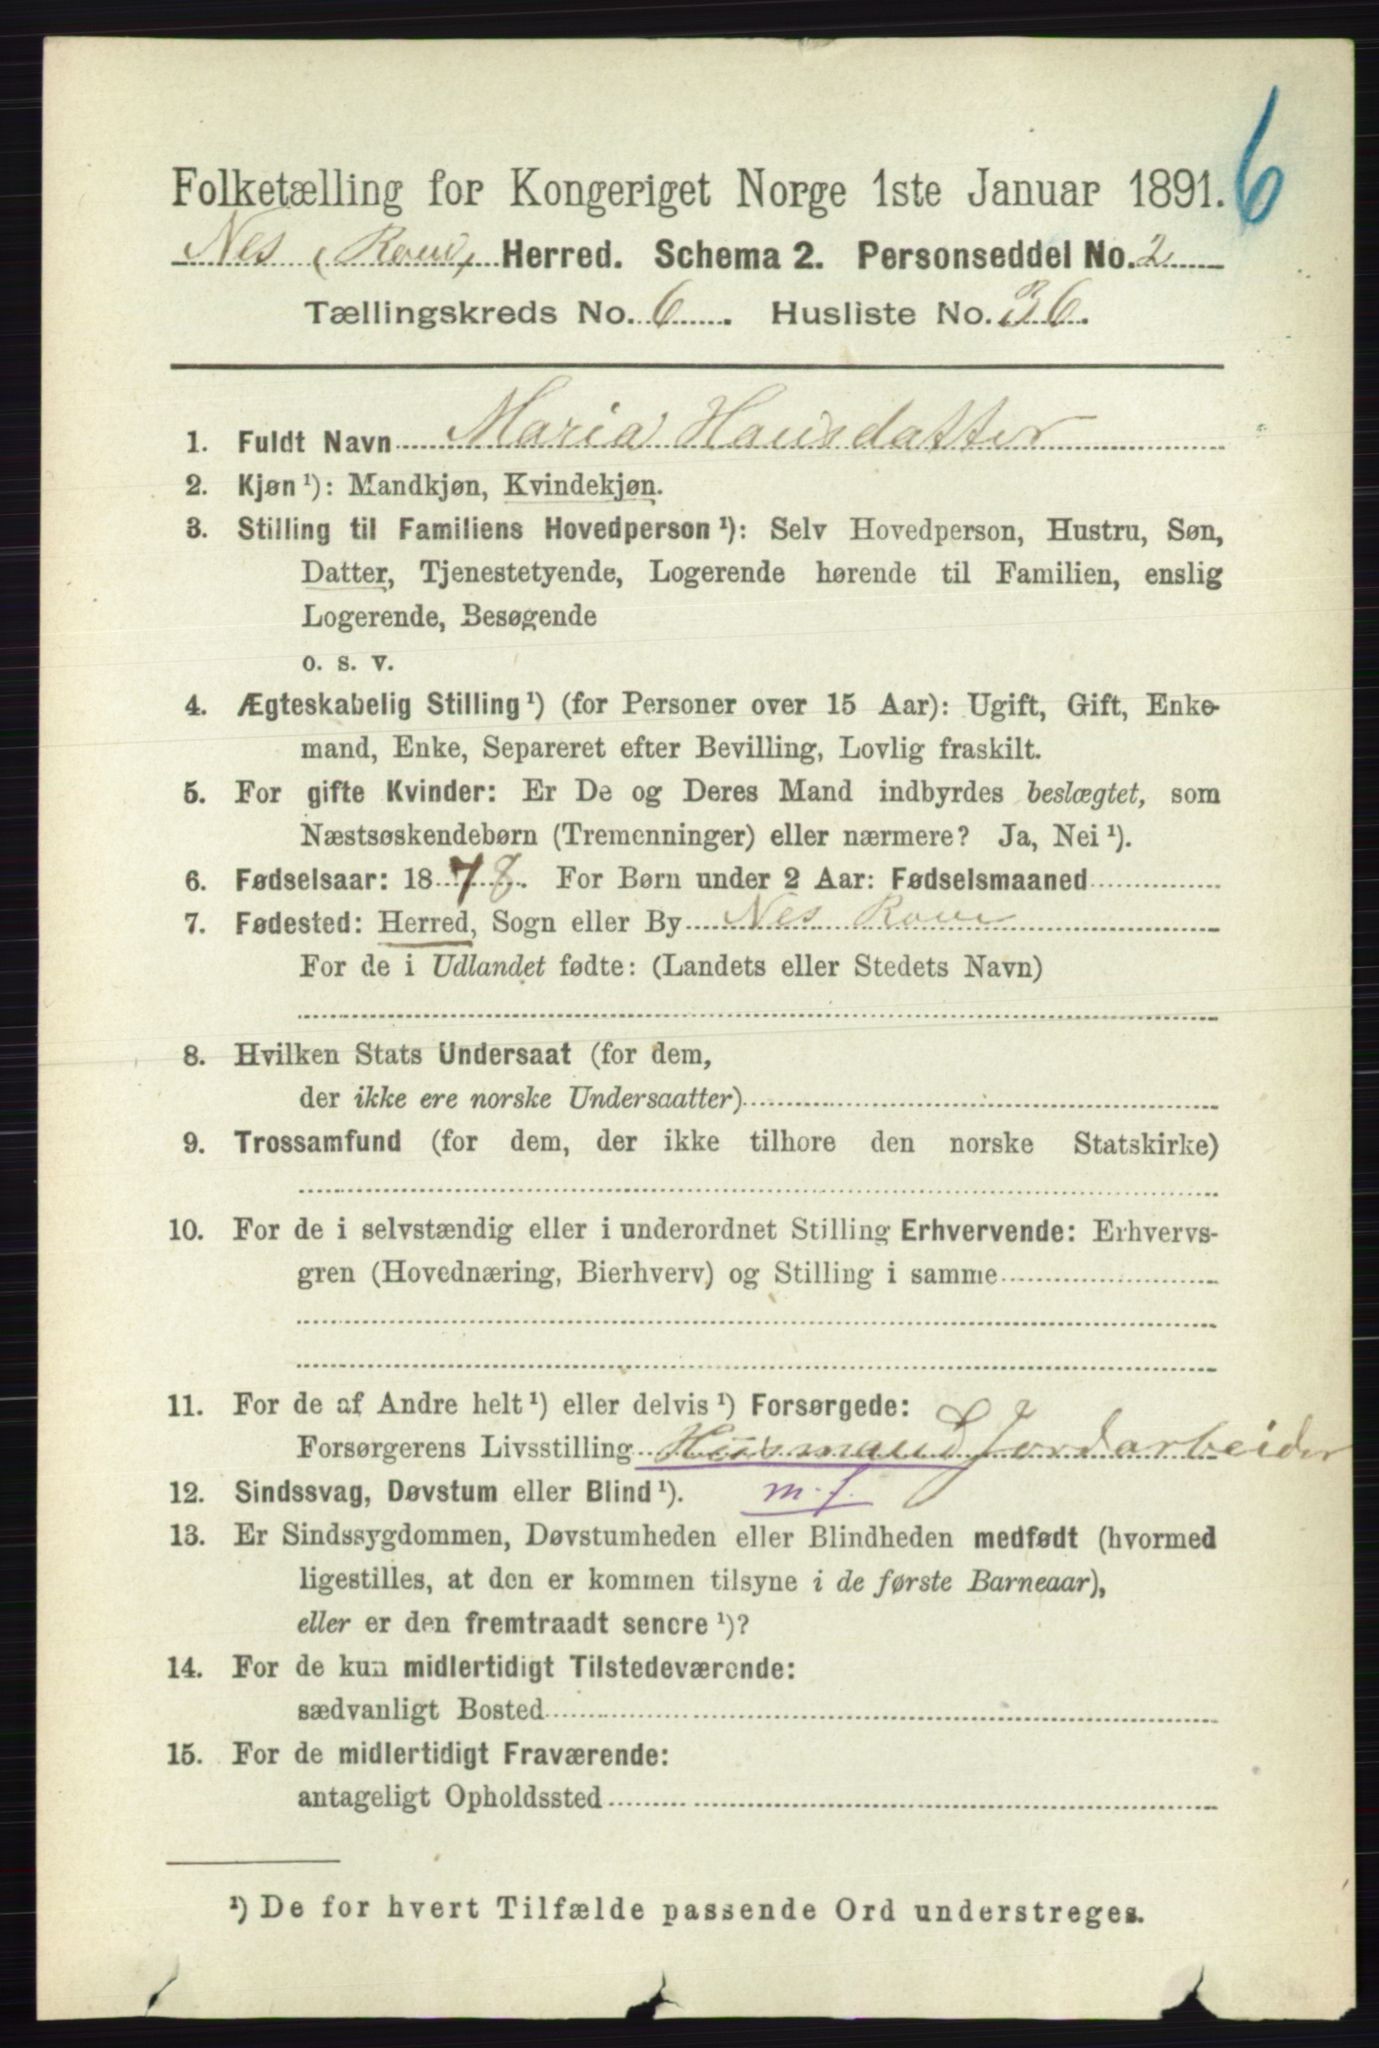 6
Folketælling for Kongeriget Norge 1ste Januar 1891.
Nes (Rom) Herred. Schema 2. Personseddel No. 2
Tællingskreds No. 6. Husliste No. 36.
1. Fuldt Navn Maria Hansdatter
2. Kjøn ¹): Mandkjøn, Kvindekjøn.
3. Stilling til Familiens Hovedperson ¹): Selv Hovedperson, Hustru, Søn,
Datter, Tjenestetyende, Logerende hørende til Familien, enslig
Logerende, Besøgende
o. s. v.
4. Ægteskabelig Stilling ¹) (for Personer over 15 Aar): Ugift, Gift, Enke-
mand, Enke, Separeret efter Bevilling, Lovlig fraskilt.
5. For gifte Kvinder: Er De og Deres Mand indbyrdes beslægtet, som
Næstsøskendebørn (Tremenninger) eller nærmere? Ja, Nei ¹).
6. Fødselsaar: 1878. For Børn under 2 Aar: Fødselsmaaned
7. Fødested: Herred, Sogn eller By Nes Rom
For de i Udlandet fødte: (Landets eller Stedets Navn)
8. Hvilken Stats Undersaat (for dem,
der ikke ere norske Undersaatter)
9. Trossamfund (for dem, der ikke tilhore den norske Statskirke)
10. For de i selvstændig eller i underordnet Stilling Erhvervende: Erhvervs-
gren (Hovednæring, Bierhverv) og Stilling i samme
11. For de af Andre helt ¹) eller delvis ¹) Forsørgede:
Forsørgerens Livsstilling Husmand Jordarbeider
12. Sindssvag, Døvstum eller Blind ¹). m. f.
13. Er Sindssygdommen, Døvstumheden eller Blindheden medfødt (hvormed
ligestilles, at den er kommen tilsyne i de første Barneaar),
eller er den fremtraadt senere ¹)?
14. For de kun midlertidigt Tilstedeværende:
sædvanligt Bosted
15. For de midlertidigt Fraværende:
antageligt Opholdssted
¹) De for hvert Tilfælde passende Ord understreges.